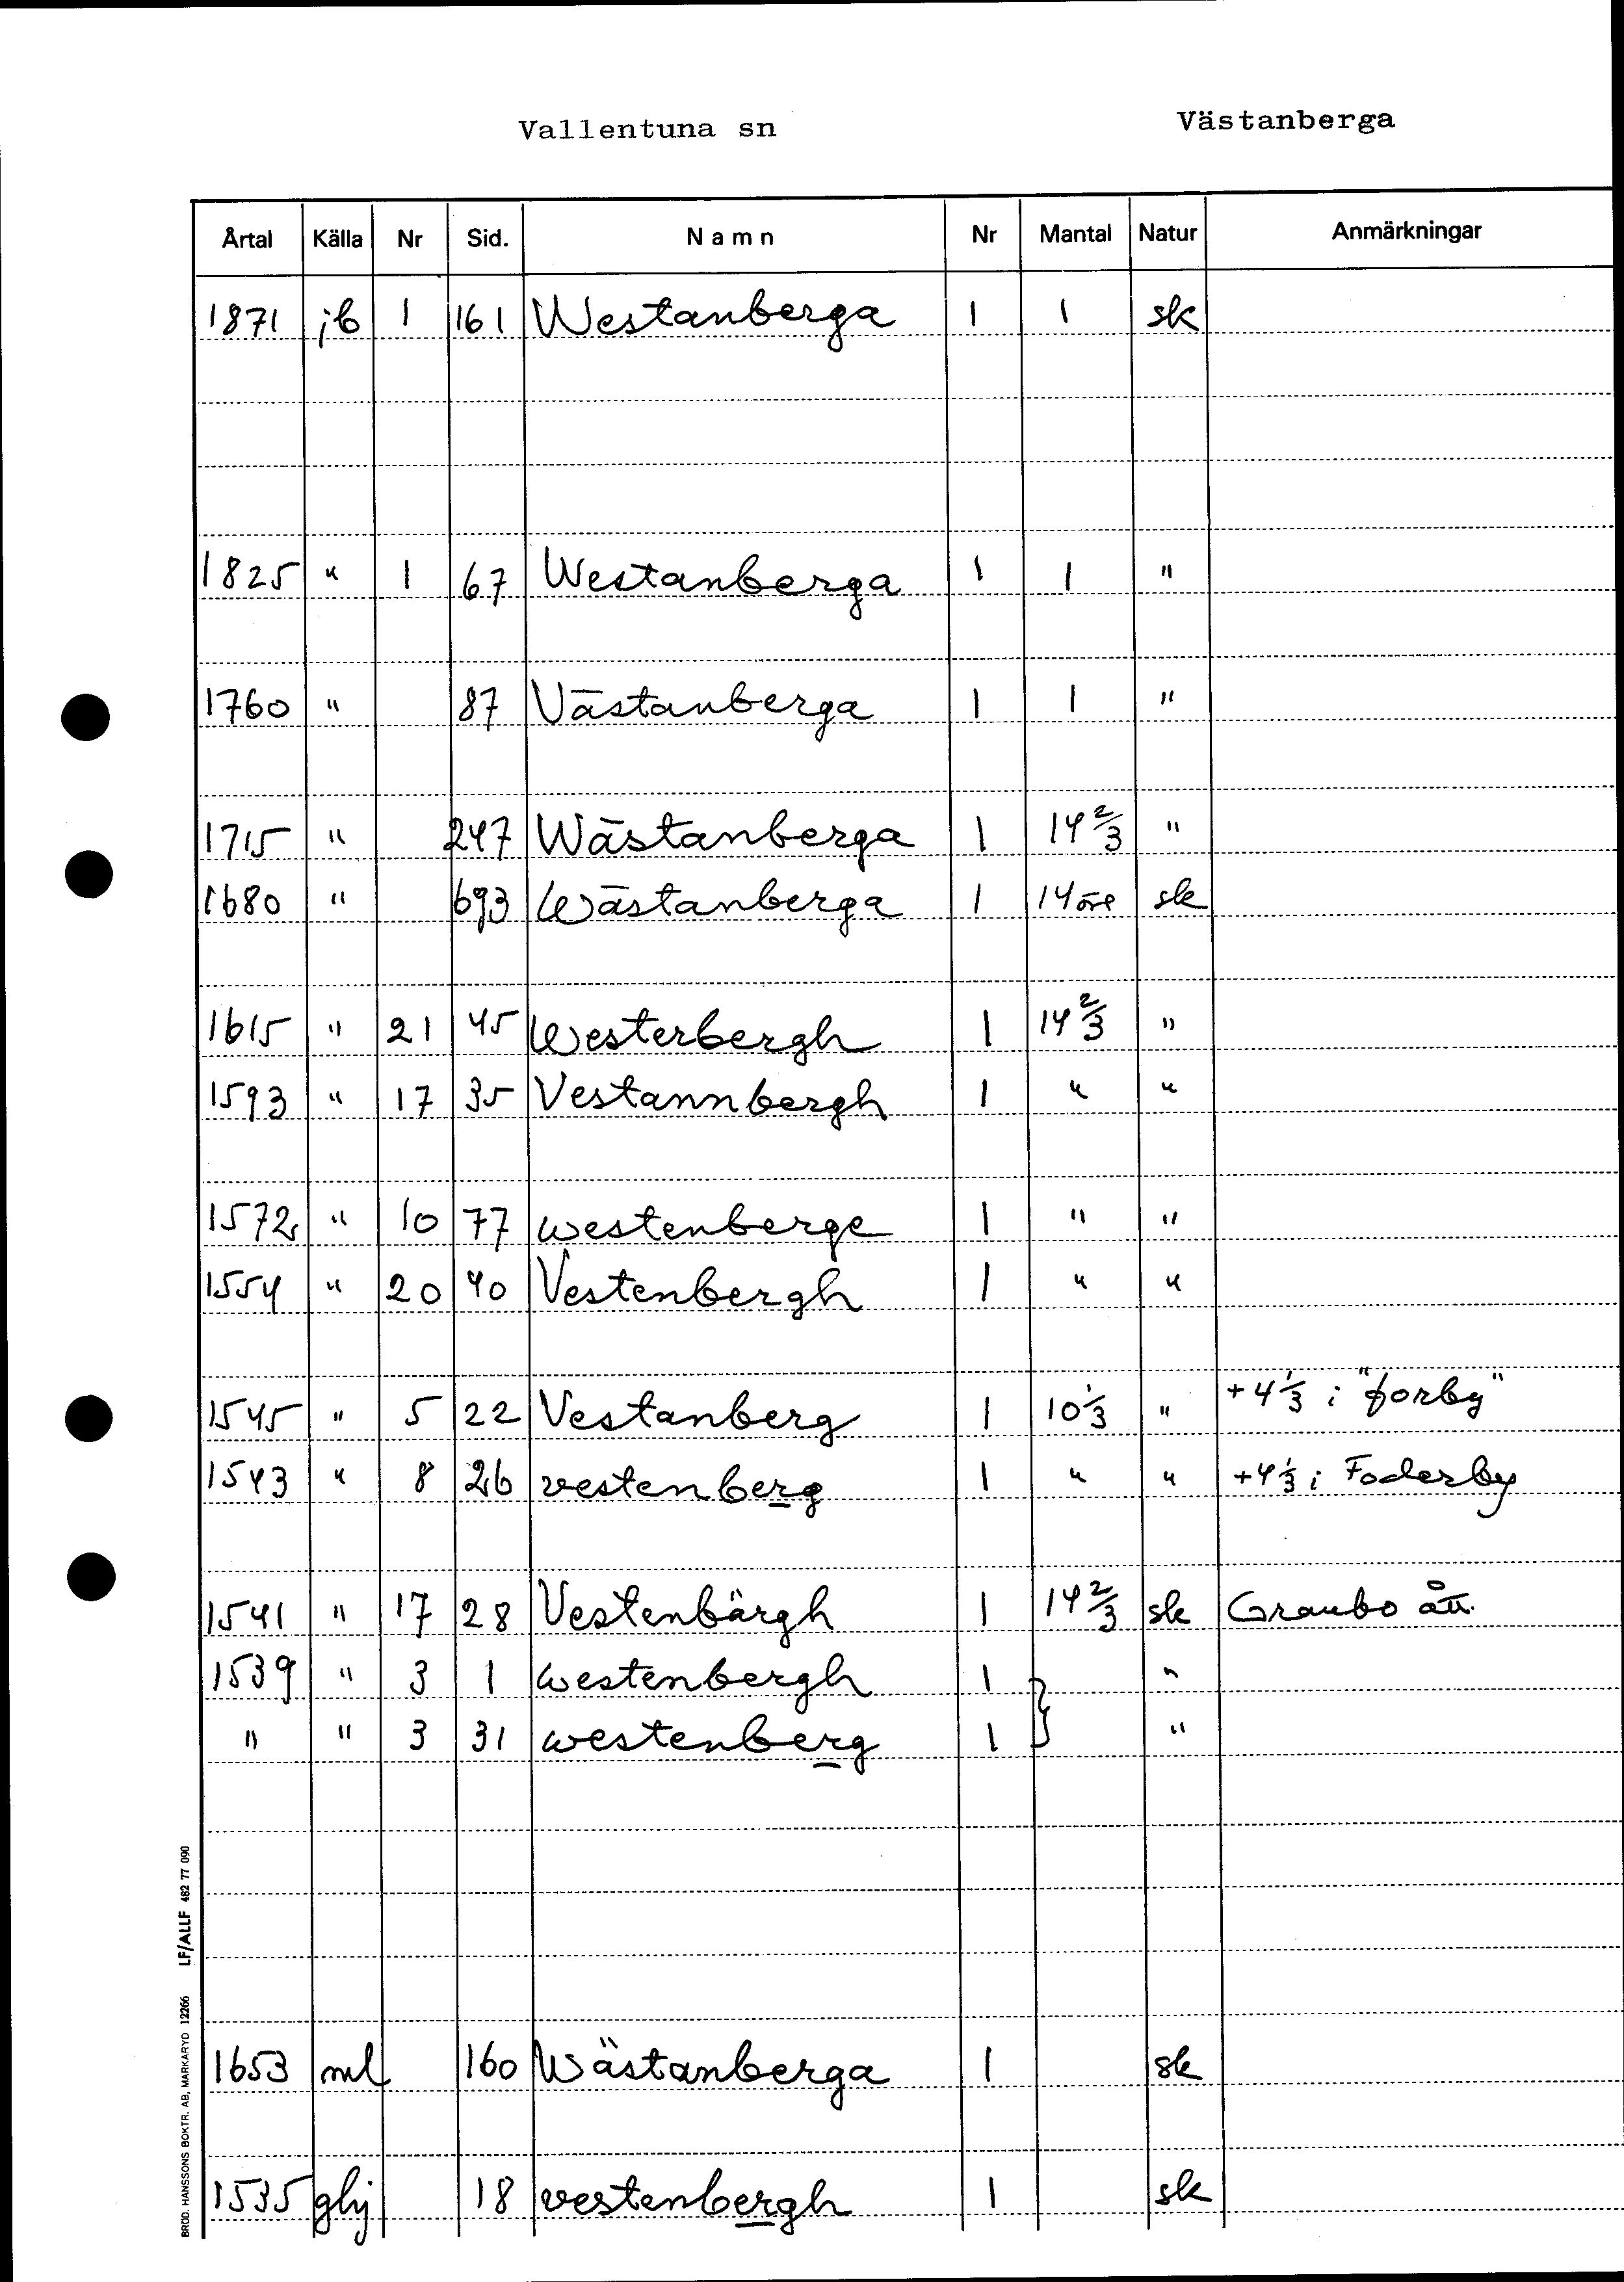 Vallentuna sn Västanberga
Årtal Källa Nr Sid. Namn Nr Mantal Natur Anmärkningar
1871 jb 1 161 Westanberga 1 1 sk
1825 " 1 67 Westanberga 1 1 "
1760 " 87 Västanberga 1 1 "
1715 " 247 Wästanberga 1 14 2/3 "
1680 " 693 Wästanberga 1 14 öre sk
1615 " 21 45 Westerbergh 1 14 2/3 "
1593 " 17 35 Vestannbergh 1 " "
1572 " 10 77 westenberge 1 " "
1554 " 20 40 Vestenbergh 1 " "
1545 " 5 22 Vestanberg 1 10 1/3 " + 4 1/3 i "forby"
1543 " 8 26 vestenberg 1 " " + 4 1/3 i Foderby
1541 " 17 28 Vestenbärgh 1 14 2/3 sk Graubo ått.
1539 " 3 1 westenbergh 1 } "
" " 3 31 westenberg 1 "
1653 ml 160 Wästanberga 1 sk
1535 ghj 18 vestenbergh 1 sk
BRÖD. HANSSONS BOKTR. AB, MARKARYD 12266 LF/ALLF 482 77 090